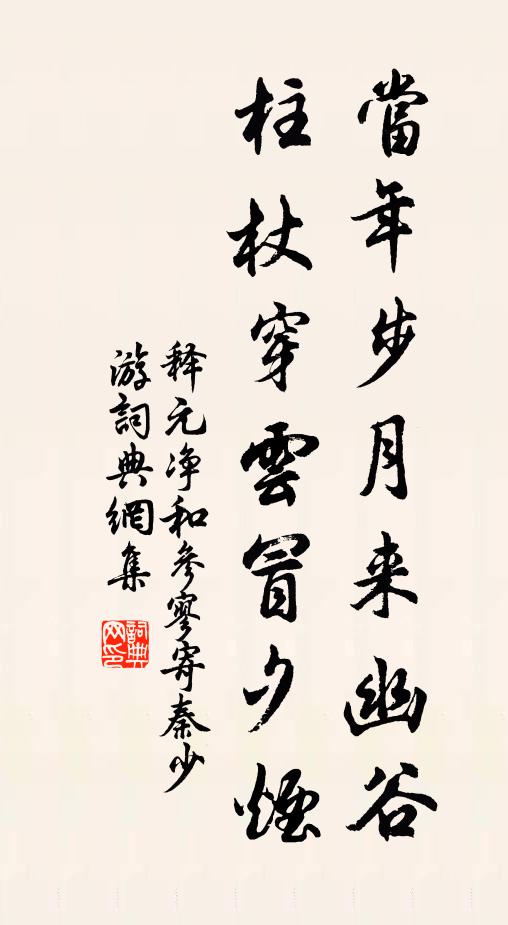 當年步月来幽谷
柱杖穿雲冒夕煙
释元净和參寥寄秦少
游詞典網集
詞典网印